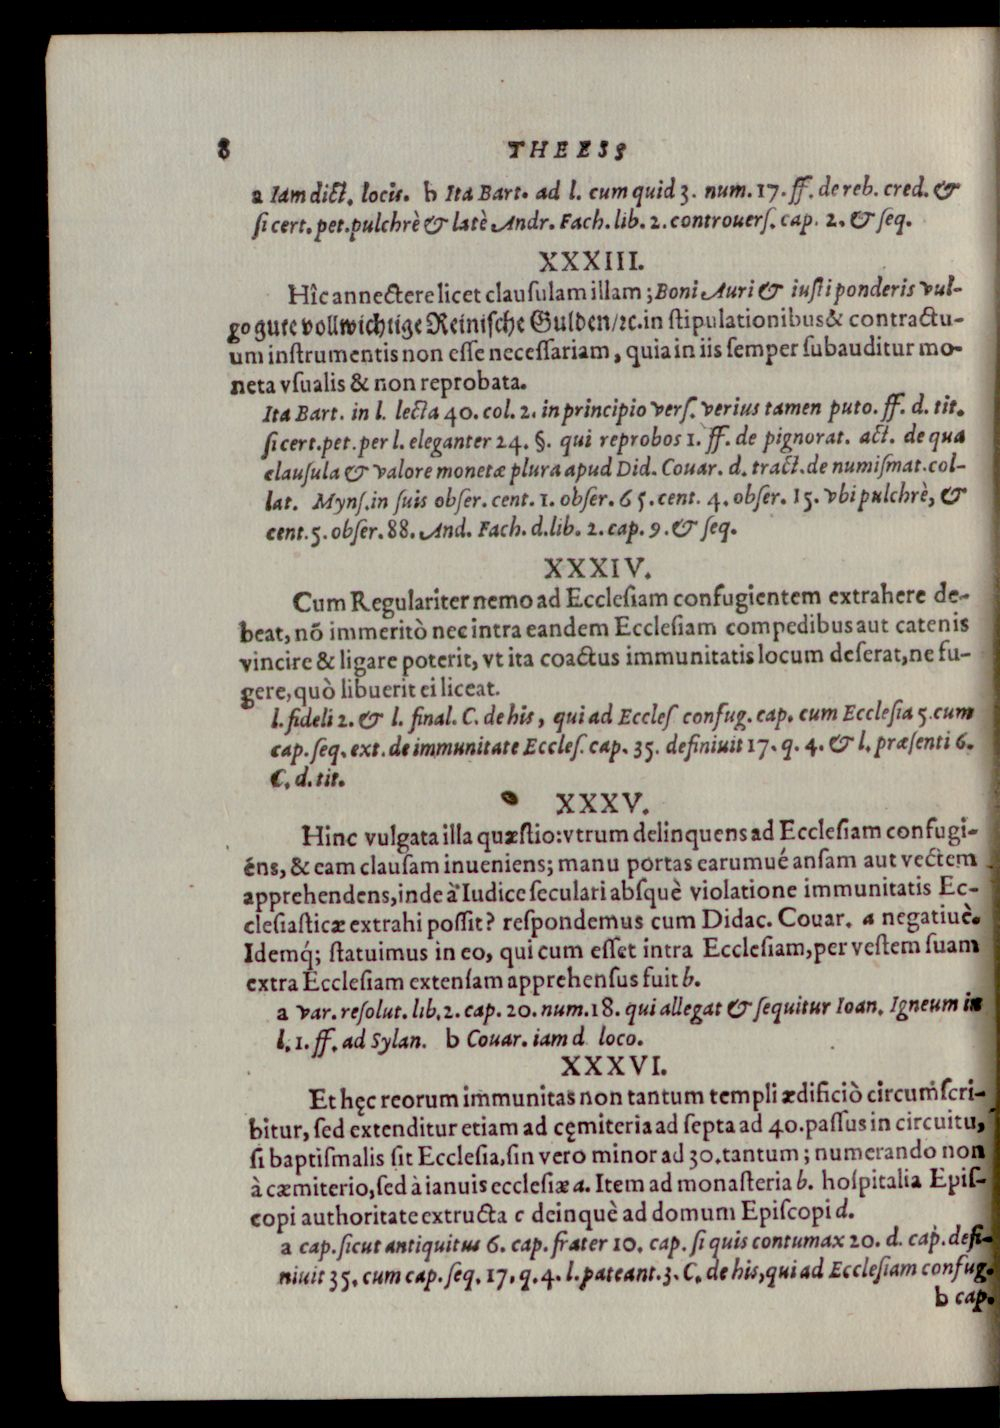 8 THEESS
a Iam dict. locis. b Ita Bart. ad l. cum quid 3. num. 17. ff. de reb. cred. &
si cert. pet. pulchrè & latè Andr. Fach. lib. 2. controuerſ. cap. 2. & ſeq.
XXXIII.
Hîc annectere licet clauſulam illam; Boni Auri & iuſti ponderis vul-
go gute vollwichtige Reiniſche Gulden/ꝛc. in ſtipulationibus & contractu-
um inſtrumentis non eſſe neceſſariam, quia in iis ſemper ſubauditur mo-
neta vſualis & non reprobata.
Ita Bart. in l. lecta 40. col. 2. in principio verſ. verius tamen puto. ff. d. tit.
ſi cert. pet. per l. eleganter 24. §. qui reprobos 1. ff. de pignorat. act. de qua
clauſula & valore monetæ plura apud Did. Couar. d. tract. de numiſmat. col-
lat. Mynſ. in ſuis obſer. cent. 1. obſer. 65. cent. 4. obſer. 15. vbi pulchrè, &
cent. 5. obſer. 88. And. Fach. d. lib. 2. cap. 9. & ſeq.
XXXIV.
Cum Regulariter nemo ad Eccleſiam confugientem extrahere de-
beat, nõ immeritò nec intra eandem Eccleſiam compedibus aut catenis
vincire & ligare poterit, vt ita coactus immunitatis locum deſerat, ne fu-
gere, quò libuerit ei liceat.
l. fideli 2. & l. final. C. de his, qui ad Eccleſ confug. cap. cum Eccleſia 5. cum
cap. ſeq. ext. de immunitate Eccleſ. cap. 35. definiuit 17. q. 4. & l. præſenti 6.
C. d. tit.
XXXV.
Hinc vulgata illa quæſtio: vtrum delinquens ad Eccleſiam confugi-
éns, & eam clauſam inueniens; manu portas earumué anſam aut vectem
apprehendens, inde à Iudice ſeculari abſquè violatione immunitatis Ec-
cleſiaſticæ extrahi poſſit? reſpondemus cum Didac. Couar. a negatiuè.
Idemq́; ſtatuimus in eo, qui cum eſſet intra Eccleſiam, per veſtem ſuam
extra Eccleſiam extenſam apprehenſus fuit b.
a var. reſolut. lib. 2. cap. 20. num. 18. qui allegat & ſequitur Ioan. Igneum in
l. 1. ff. ad Sylan. b Couar. iam d loco.
XXXVI.
Et hęc reorum immunitas non tantum templi ædificiò circumſcri-
bitur, ſed extenditur etiam ad cęmiteria ad ſepta ad 40. paſſus in circuitu,
ſi baptiſmalis ſit Eccleſia, ſin vero minor ad 30. tantum; numerando non
à cæmiterio, ſed à ianuis eccleſiæ a. Item ad monaſteria b. hoſpitalia Epiſ-
copi authoritate extructa c deinquè ad domum Epiſcopi d.
a cap. ſicut antiquitus 6. cap. frater 10. cap. ſi quis contumax 20. d. cap. defi-
niuit 35. cum cap. ſeq. 17. q. 4. l. pateant. 3. C. de his, qui ad Eccleſiam confug.
b cap.